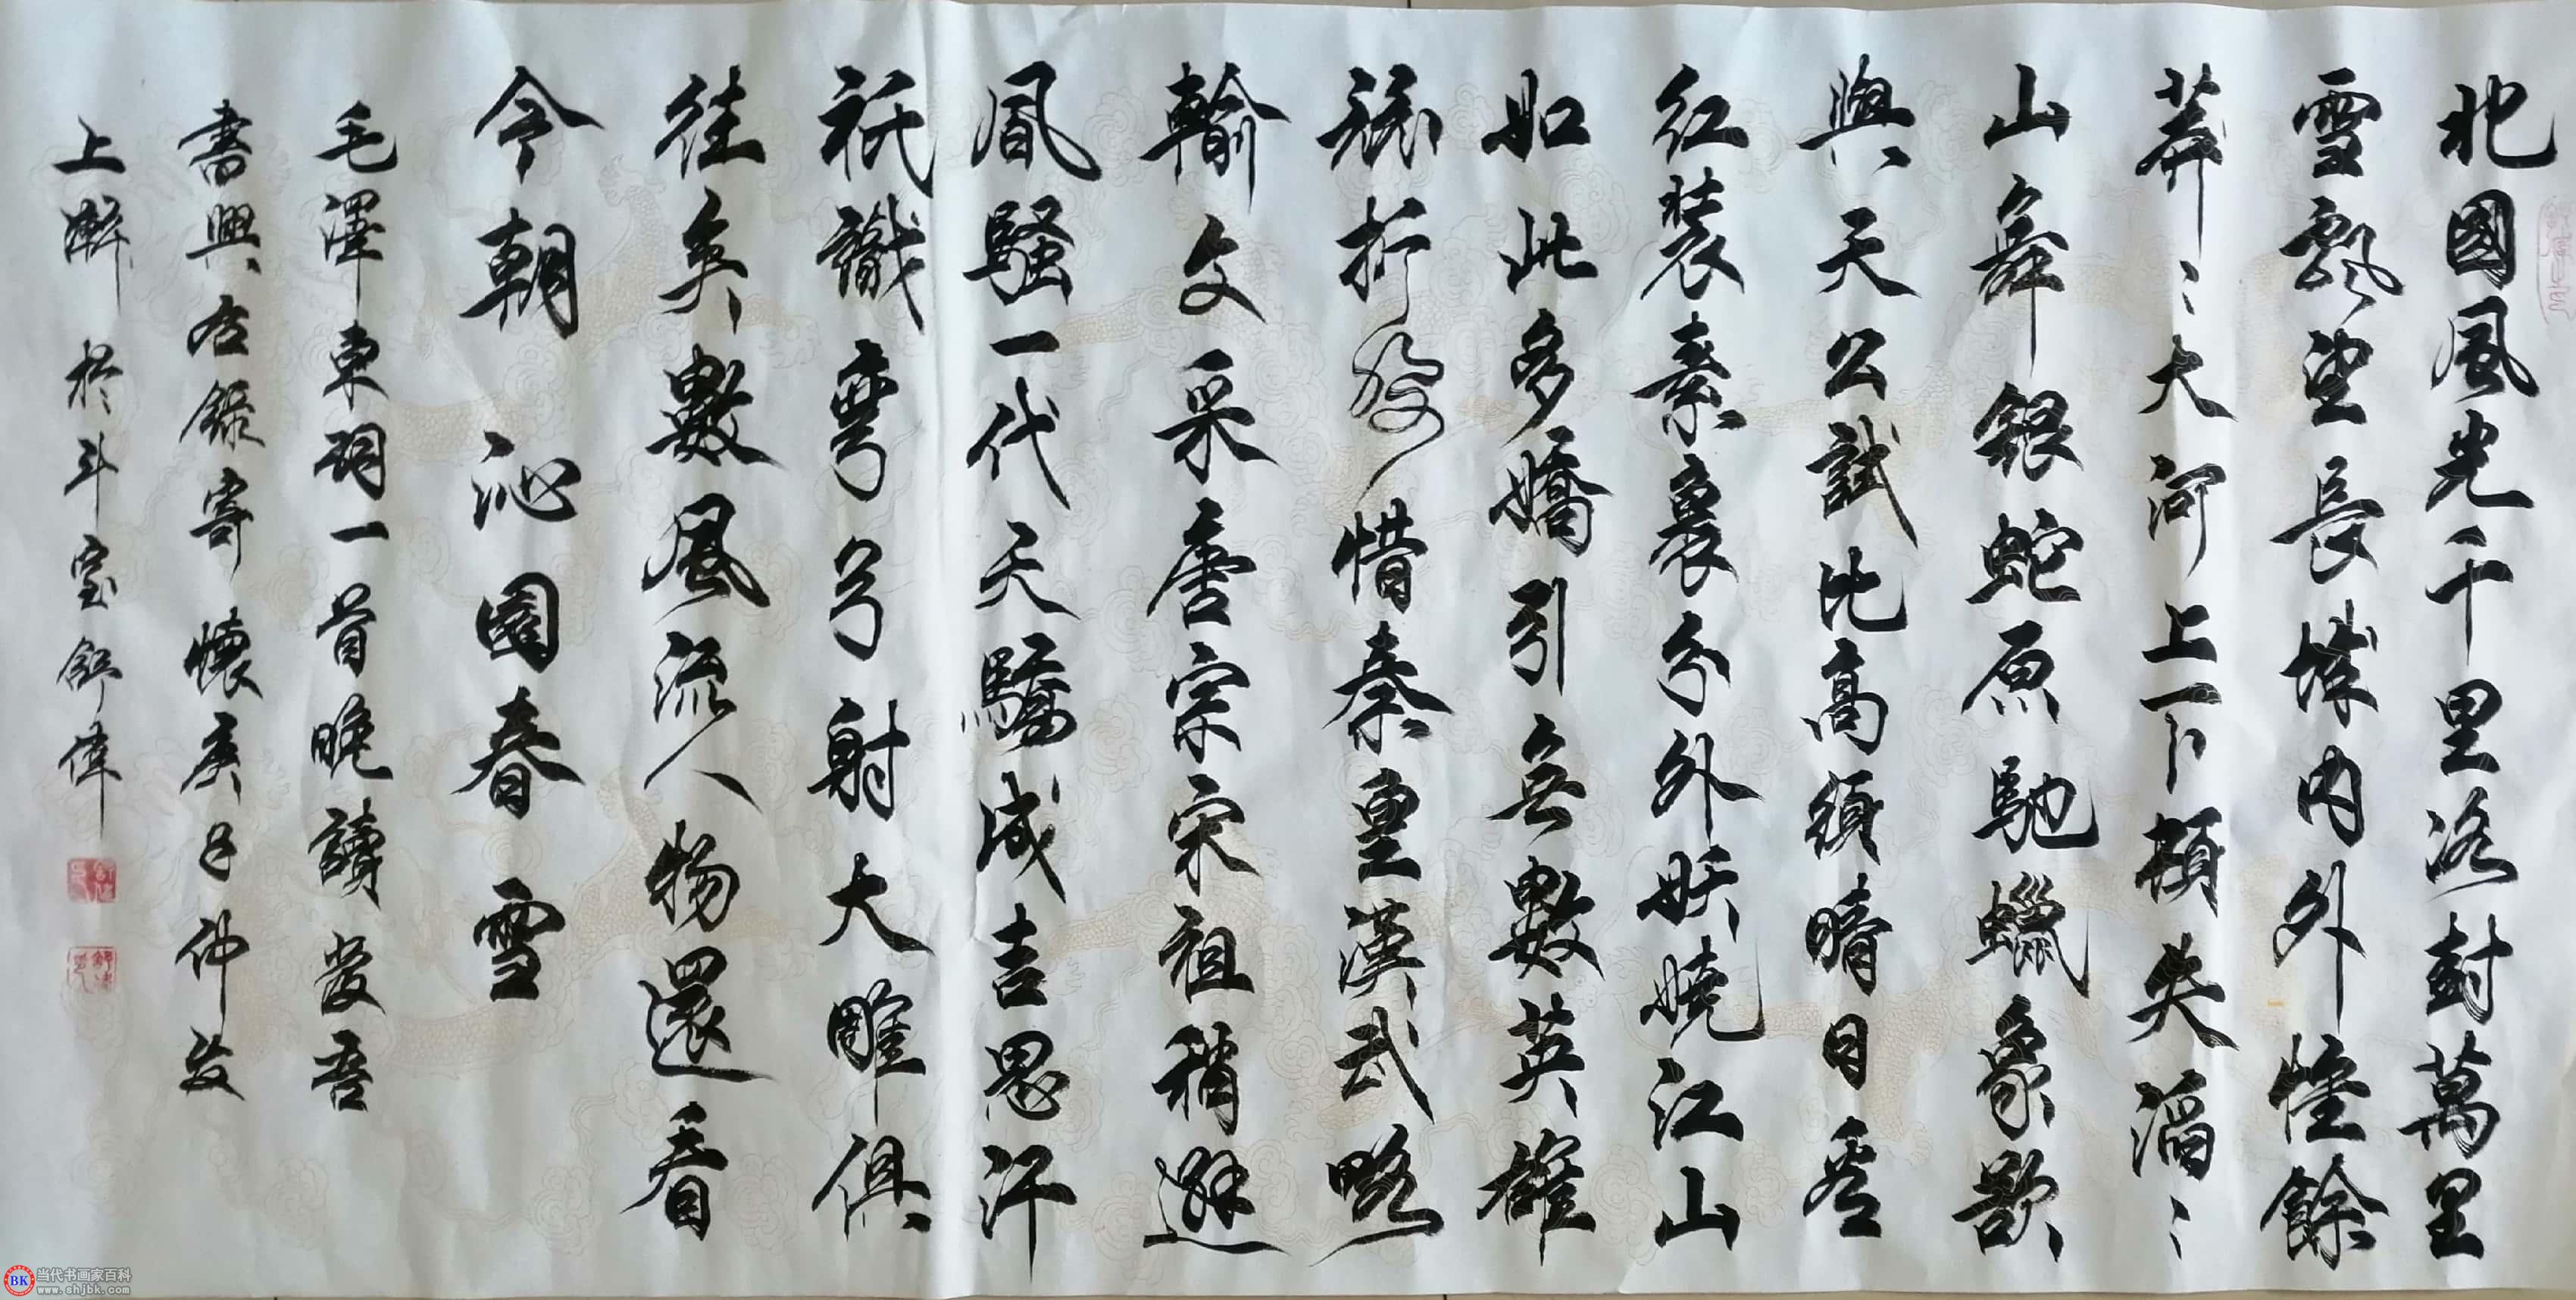 北國風光千里冰封萬里
雪飄望長城内外惟餘
莽〻大河上下頓失滔〻
山舞銀蛇原馳蠟象欲
與天公試比高須晴日看
紅裝素裹分外妖嬈江山
如此多嬌引無數英雄
折腰惜秦皇漢武略
輸文采唐宗宋祖稍遜
風騷一代天驕成吉思汗
祇識彎弓射大雕俱
往矣數風流人物還看
今朝 沁園春 雪
毛澤東詞一首晚讀發吾
書興右錄寄懷庚子仲夏
上澣 於斗室舒偉
BK 当代书画家百科
www.shjbk.com